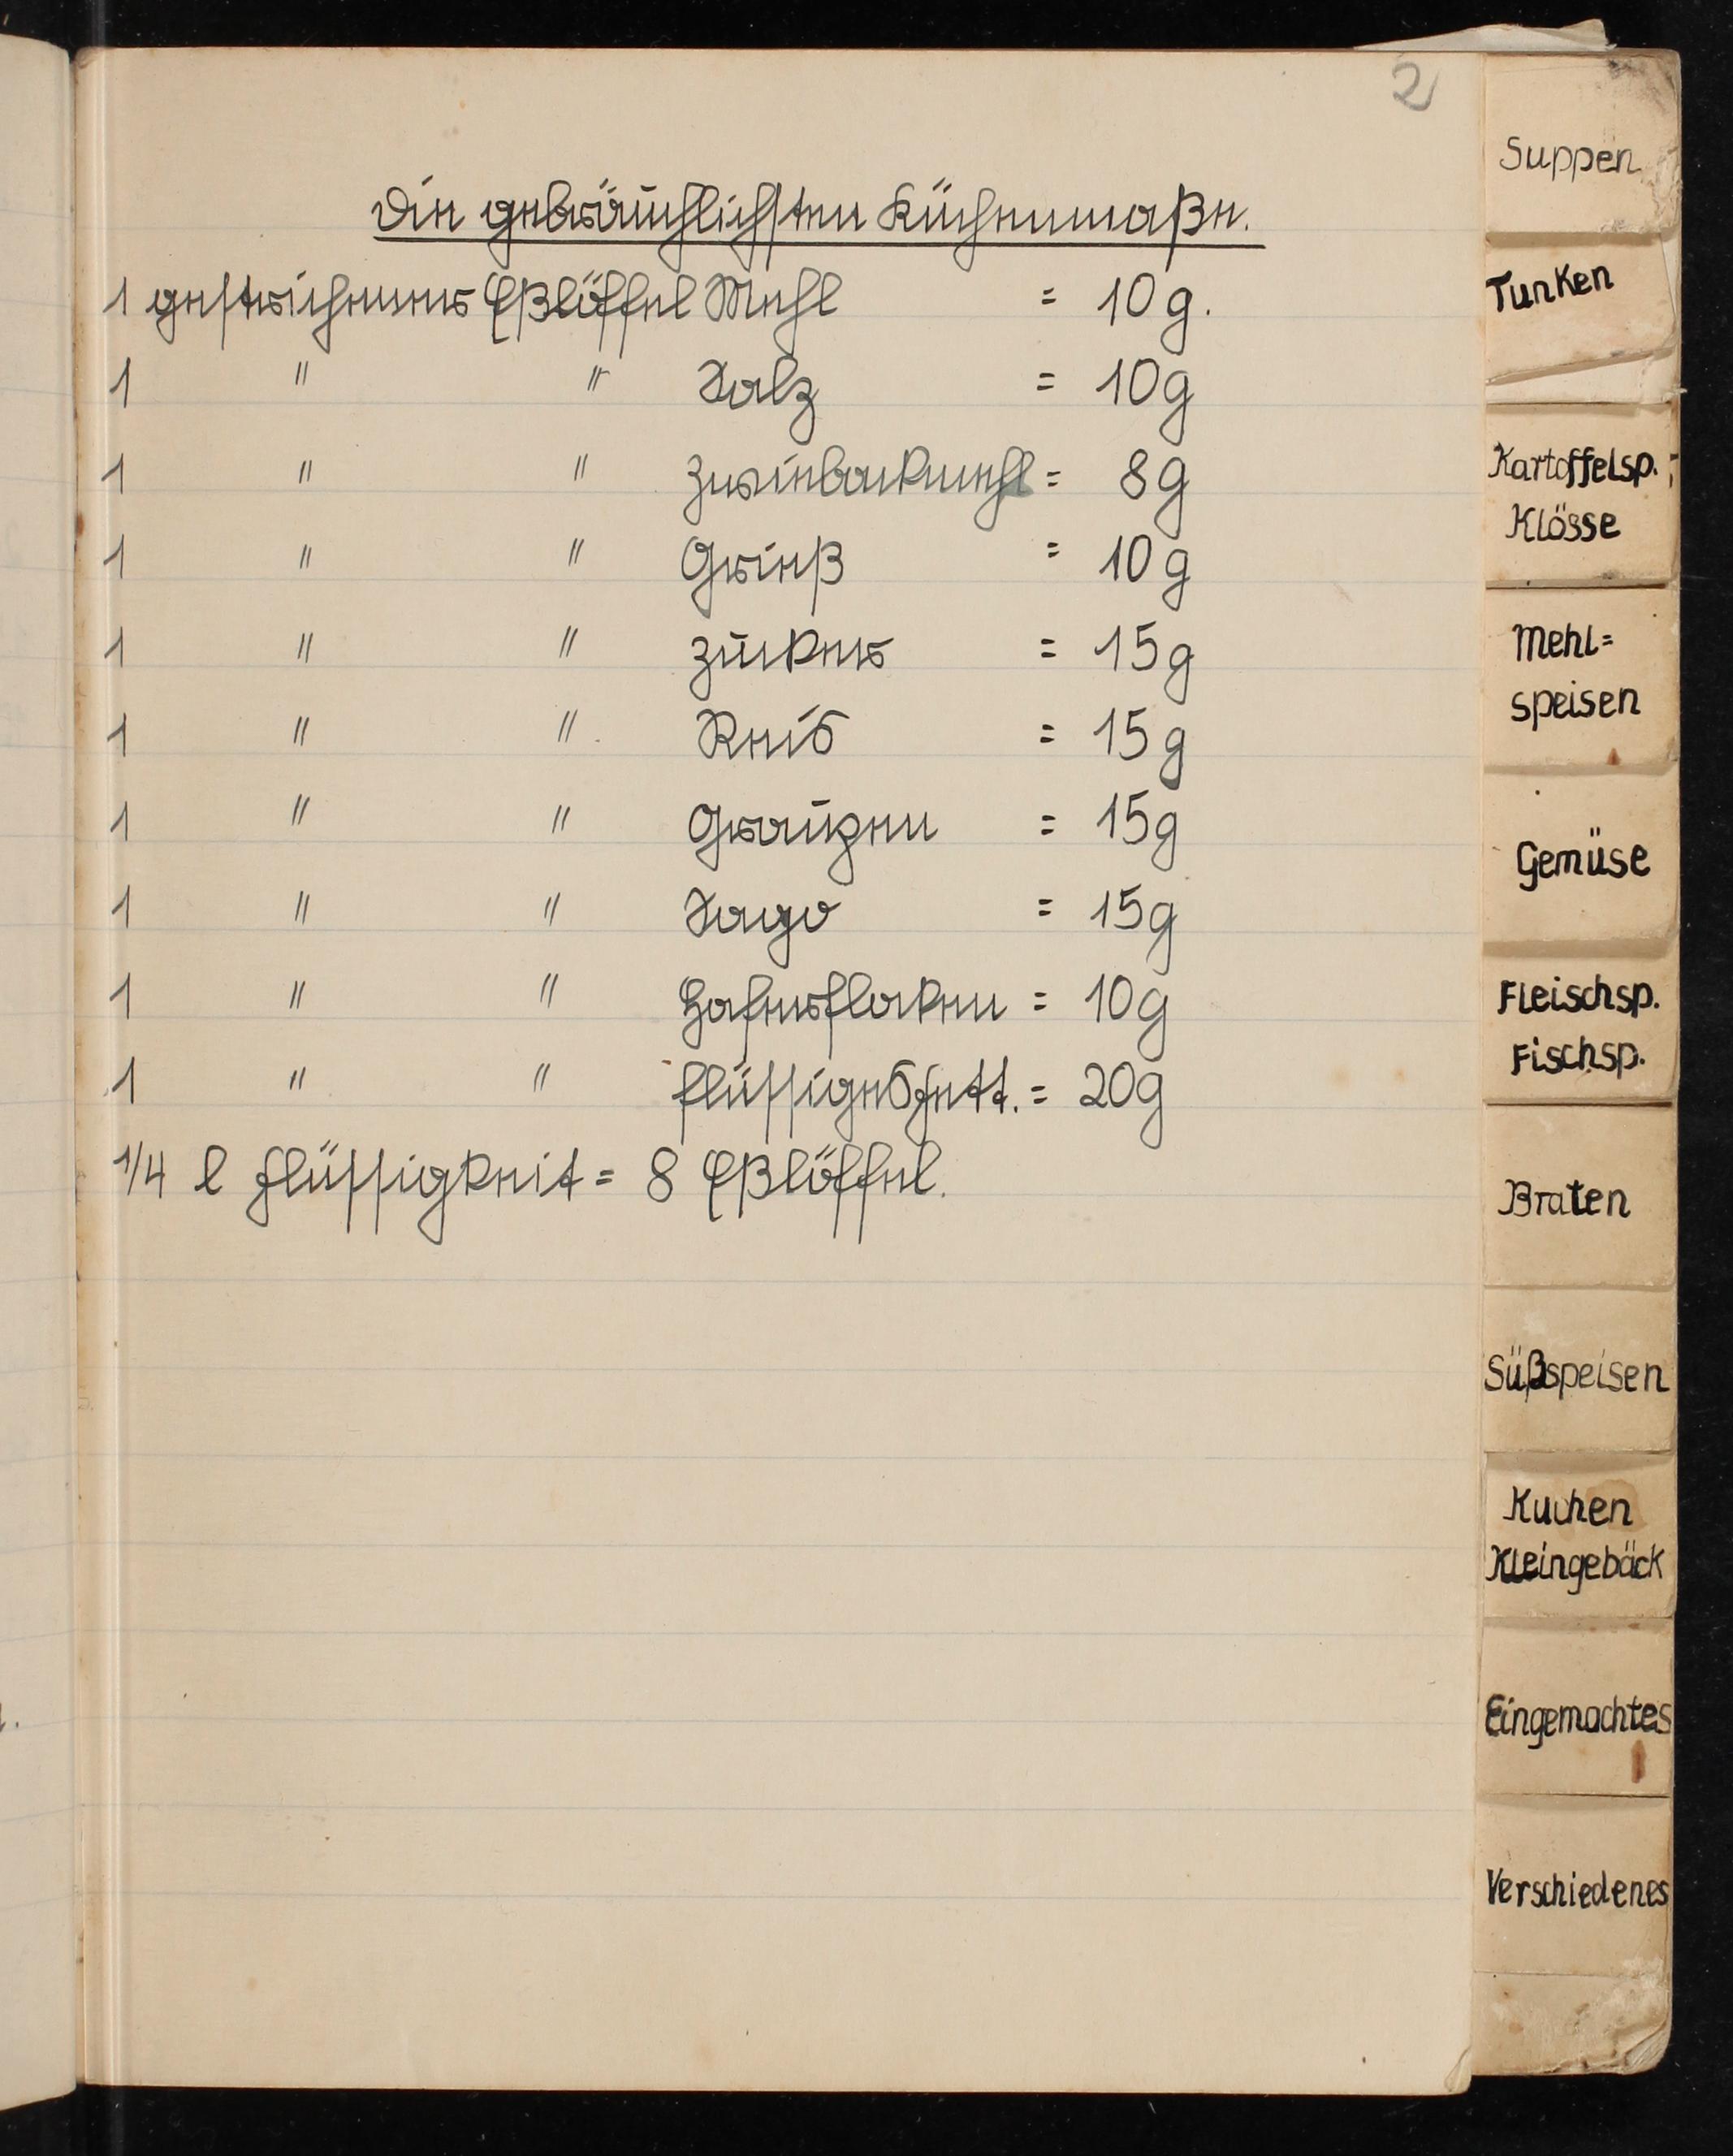 2
Die gebräuchlichsten Küchenmaße.
1 gestrichener Eßlöffel Mehl = 10 g.
1 " " Salz = 10 g
1 " " Zwiebackmehl = 8 g
1 " " Grieß = 10 g
1 " " Zucker = 15 g
1 " " Reis = 15 g
1 " " Graupen = 15 g
1 " " Sago = 15 g
1 " " Haferflocken = 10 g
1 " " flüssiges Fett. = 20 g
1/4 l Flüssigkeit = 8 Eßlöffel.
Suppen
Tunken
Kartoffelsp.
Klösse
Mehl=
speisen
Gemüse
Fleischsp.
Fischsp.
Braten
Süßspeisen
Kuchen
Kleingebäck
Eingemachtes
Verschiedenes